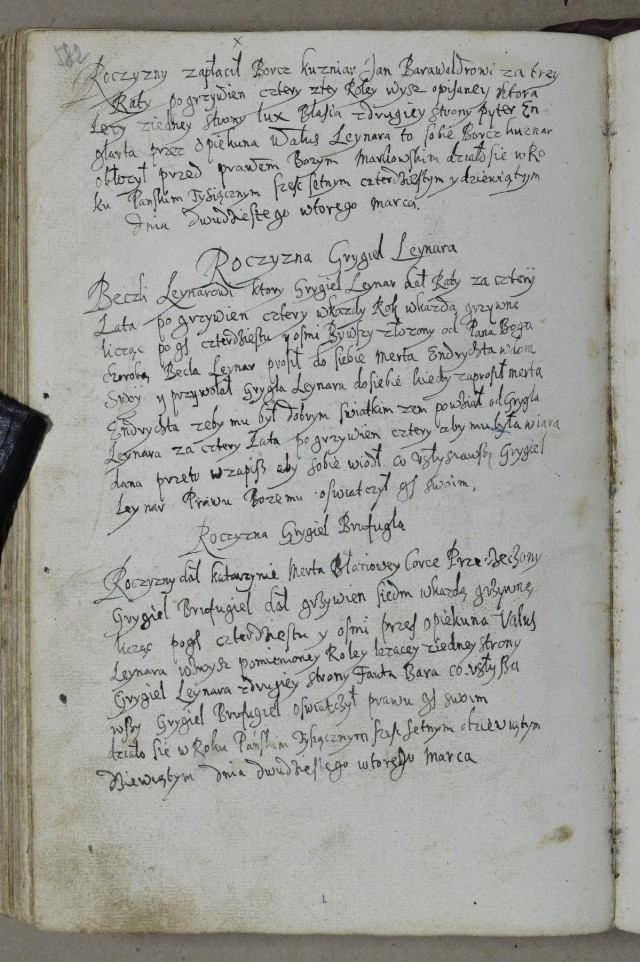 582
x
Roczyzny zapłacił Borcz kuzniar Jan Barawaldrowi za trzy
Raty po grzywien cztery ztey Roley wysz opisaney ktora
Lezy ziedney strony Lux Błasia zdrugiey strony Pyter En
glarta przez opiekuna Walus Leynara to sobie Borcz kuznar
obłozył przed prawem Bozym Markowskim działo się w Ro
ku Pańskim Tysiącznym szesc setnym czterdziestym y dziewiątym
dnia dwudziestego wtorego Marca.
Roczyzna Grygiel Leynara
Beczli Leynarowi ktory Grygiel Leynar dał Raty za cztery
Lata po grzywien cztery wkazdy Rok wkazdą grzywnę
licząc po gs czterdziestu y osmi Bywszy złozony od Pana Boga
chorobą Becla Leynar prosił do siebie Merta Endrychta w dom
swoy y przywołał Grygla Leynara do siebie kiedy zaprosił Merta
Endrychta zeby mu był dobrym swiatkim zem powział od Grygla
Leynara za cztery Lata po grzywien cztery aby mu była wiara
dana przeto w zapis aby sobie wiodł co usłyszawszy Grygiel
Leynar Prawu Bozemu oswiatczył gs swoim.
Roczyzna Grygiel Briefugla
Roczyzny dał katarzynie Merta Błaziowey Corce Przerzeczony
Grygiel Briefugiel dał grzywien siedm wkazdą grzywnę
licząc po gs czterdziestu y osmi przez opiekuna Walus
Leynara w wysz pomienioney Roley lezacey ziedney strony
Grygiel Leynara zdrugiey strony Janta Bara co usłysza
wszy Grygiel Briefugiel oswiatczył prawu gs swoim
działo się w Roku Pańskim Tysiącznym szesc setnym
dziewiątym dnia dwudziestego wtorego Marca